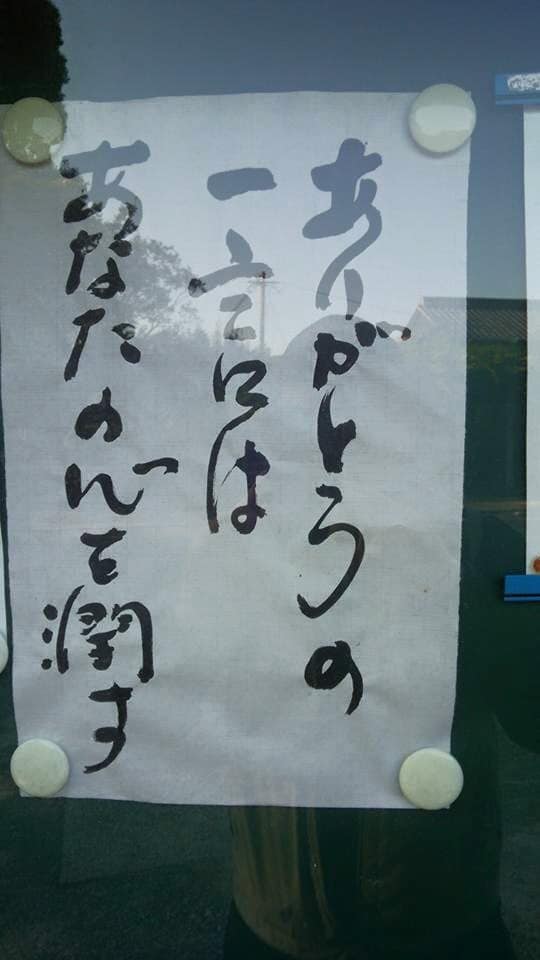 ありがとうの
一言は
あなたの心を潤す